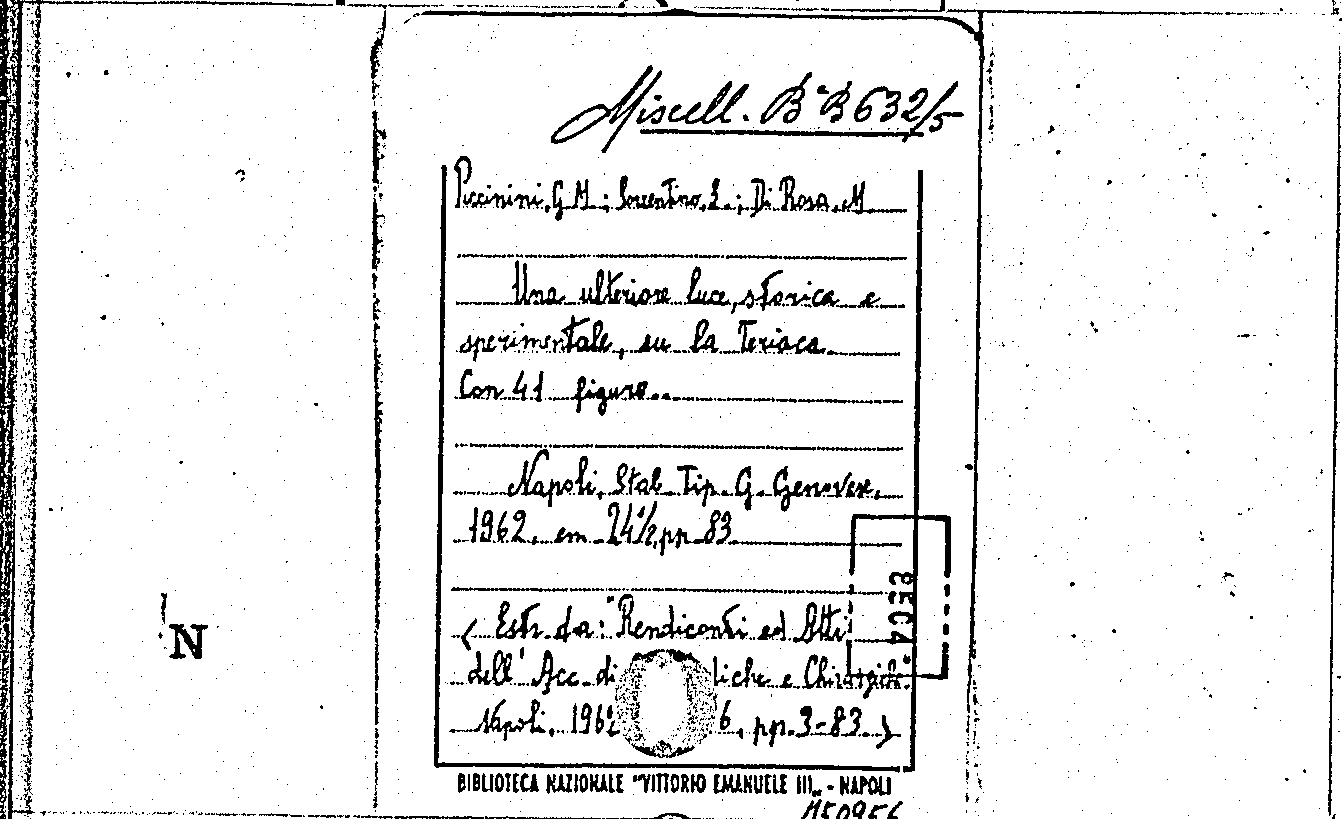 Miscell. Bª B 632/5
Piccinini, G. M.; Sorrentino, L.; Di Rosa, M.
Una ulteriore luce, storica e
sperimentale, su la Teriaca.
Con 41 figure..
Napoli, Stab. Tip. G. Genovese,
1962, cm. 24½, pp. 83
(Estr. da: "Rendiconti ed Atti
dell' Acc. di liche e Chirurgiche"
Napoli, 1962 6, pp. 3-83.)
N
BIBLIOTECA NAZIONALE "VITTORIO EMANUELE III„ - NAPOLI